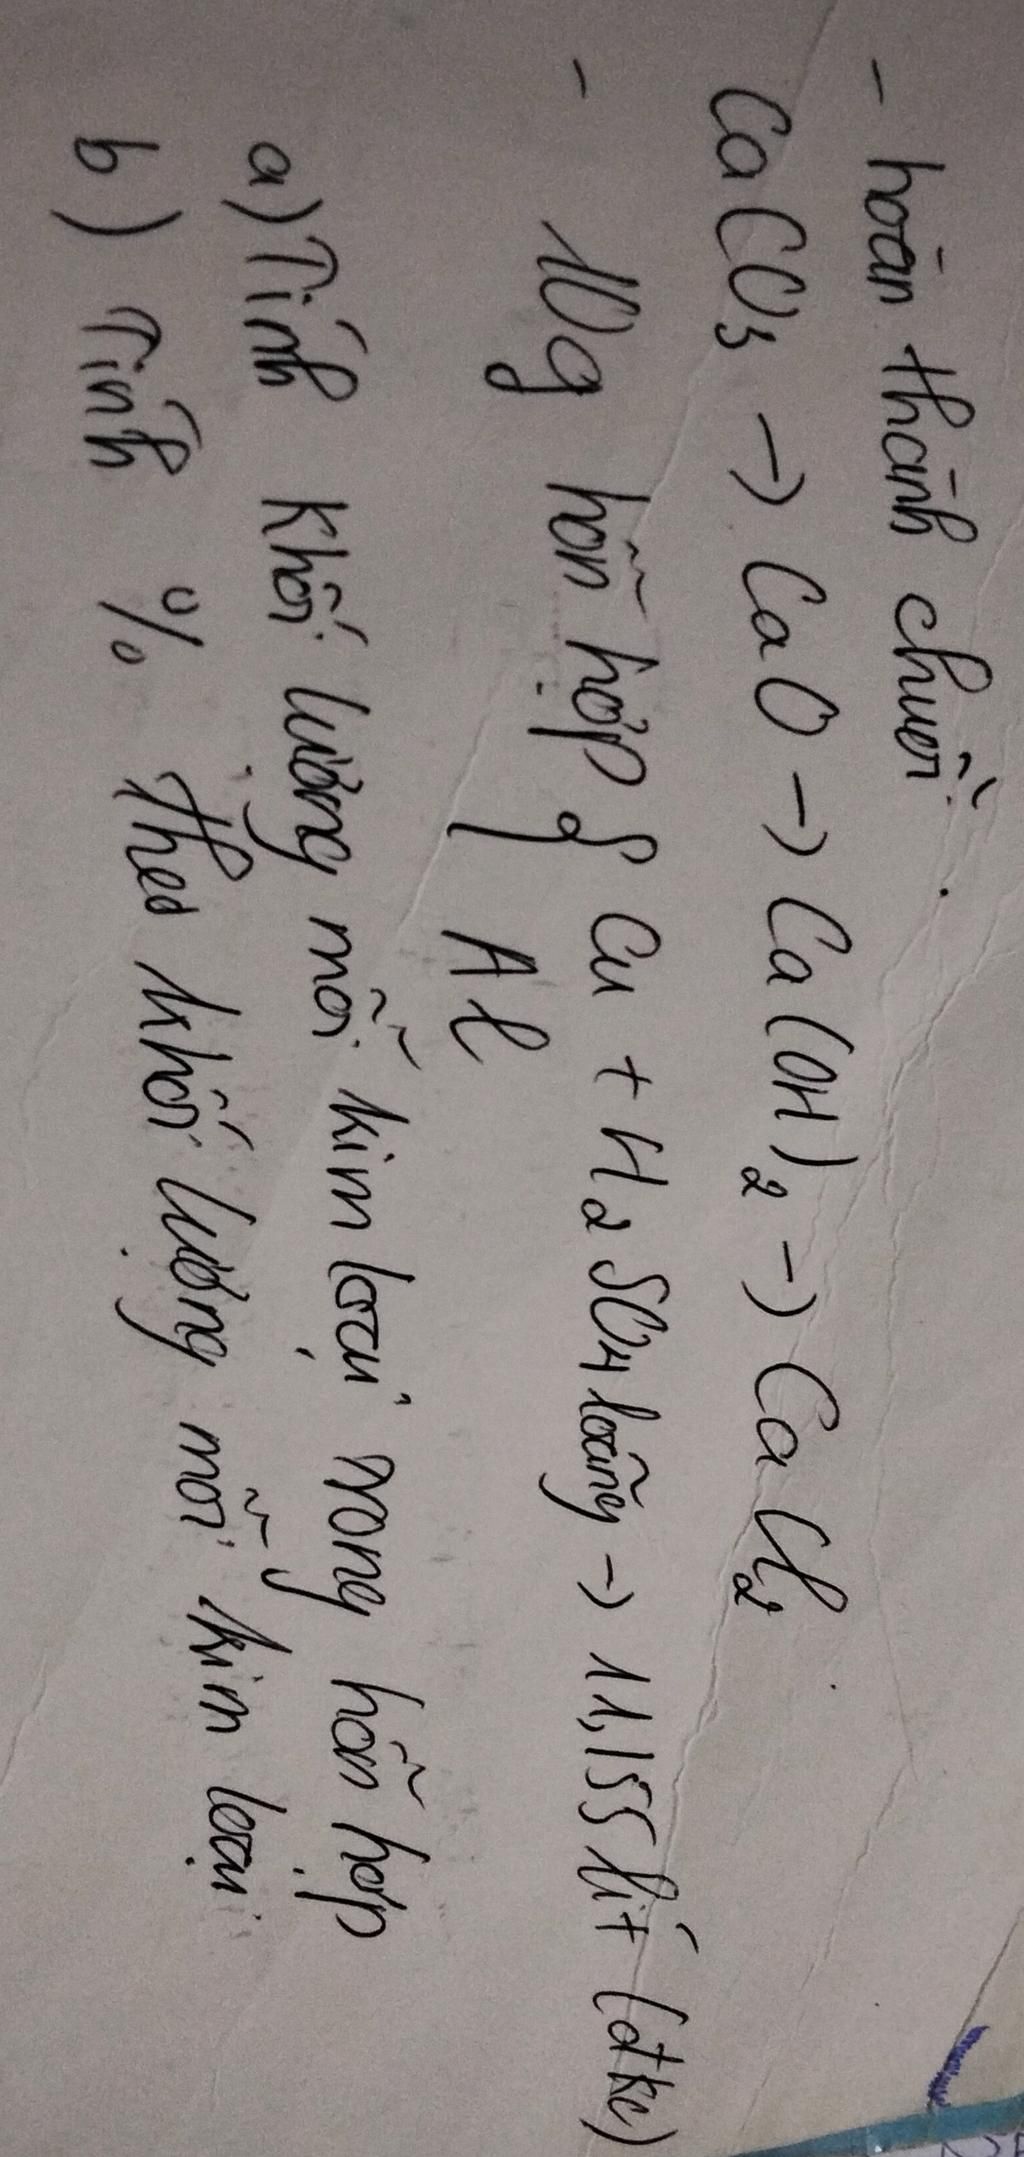 - hoàn thành chuỗi
CaCO3 → CaO → Ca(OH)2 → CaCl2
- 10g hỗn hợp { Cu + H2SO4 loãng → 11,155 lít (đkc)
Al
a) Tính khối lượng mỗi kim loại trong hỗn hợp
b) Tính % theo khối lượng mỗi kim loại